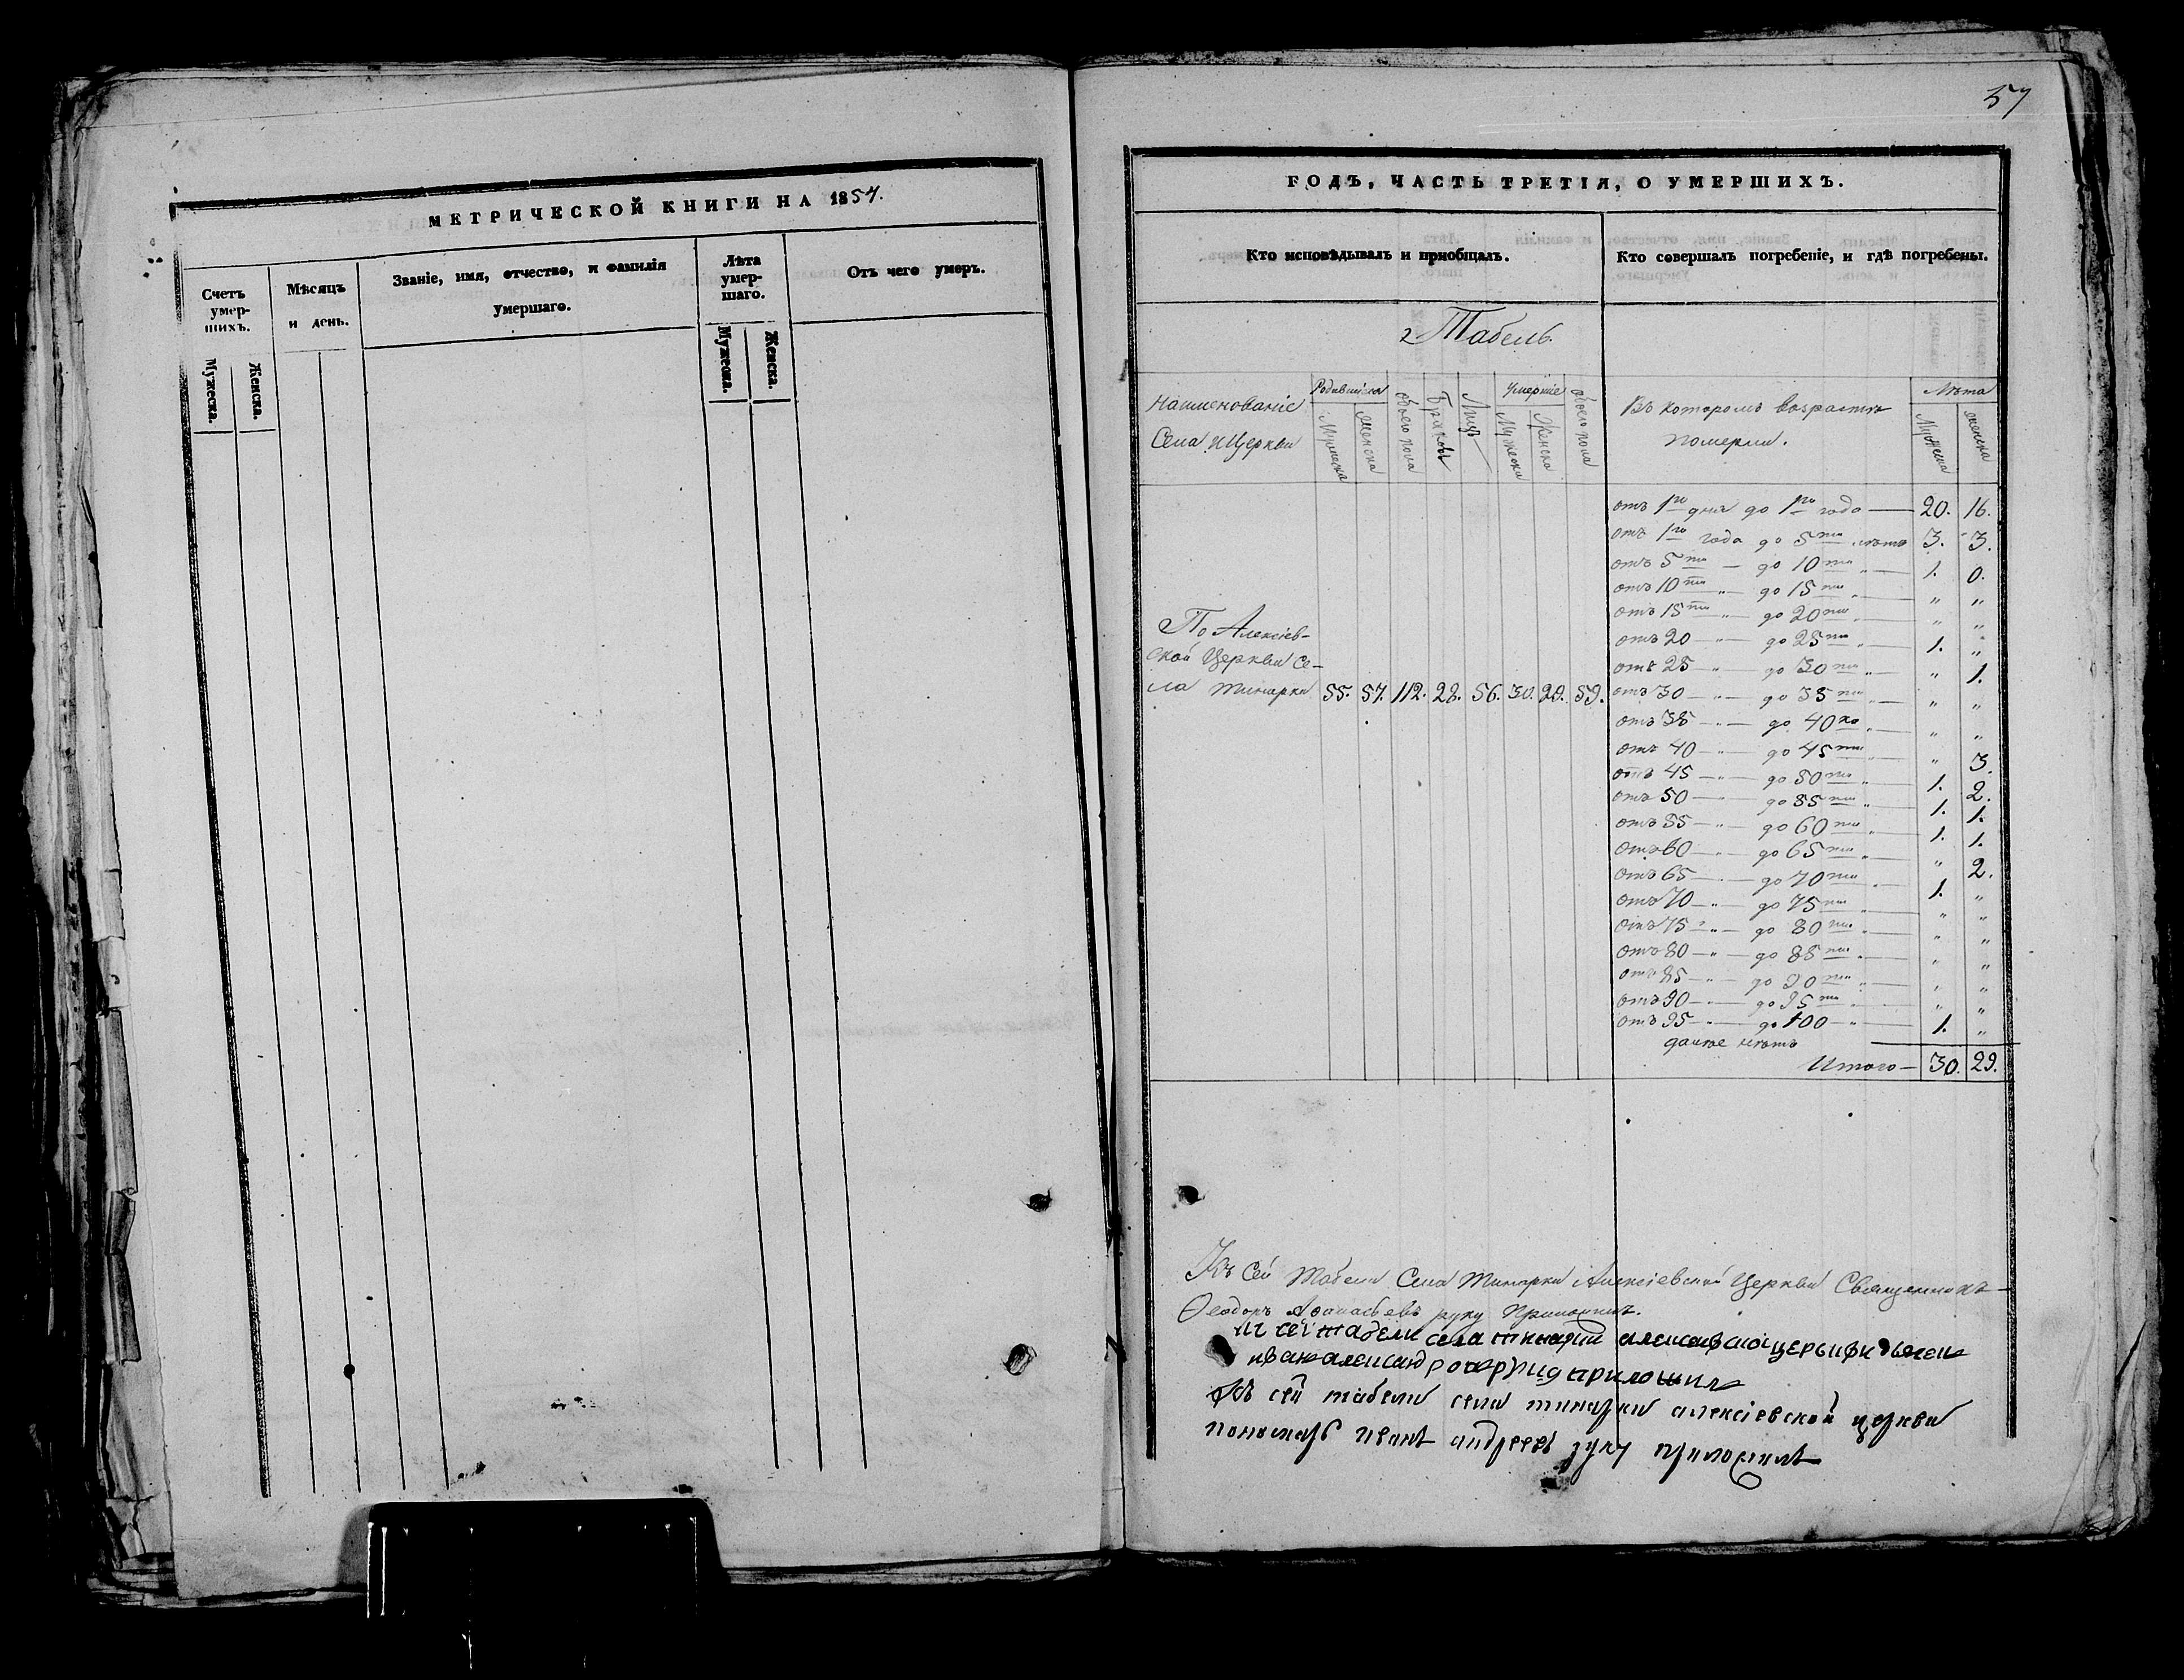 МЕТРИЧЕСКОЙ КНИГИ НА 1857.
Счетъ умер-шихъ.
Мужеска.
Женска.
Мѣсяцъ и день.
Званіе, имя, отчество, и фамилія
умершаго.
Лѣта умер-шаго.
Мужеска.
Женска.
Отъ чего умеръ.
57
ГОДЪ, ЧАСТЬ ТРЕТІЯ, О УМЕРШИХЪ.
Кто исповѣдывалъ и пріобщалъ.
Кто совершалъ погребеніе, и гдѣ погребены.
2. Табель.
Наименованіе
Села и Церкви
Родившіеся
Мужеска
Женска
Обоего пола
Браковъ
Лицъ
Умершіе
Мужеска
Женска
Обоего пола
Въ которомъ возрастѣ
померли.
Лѣта
Мужеска
Женска
По Алексіев-
ской Церкви Се-
ла Тинарки 55. 57. 112. 28. 56. 30. 29. 59.
отъ 1го дня до 1го года — 20. 16.
отъ 1го года до 5ти лѣтъ 3. 3.
отъ 5ти — до 10ти „ — 1. 0.
отъ 10ти „ — до 15ти „ — „ „
отъ 15ти „ — до 20ти „ — „ „
отъ 20 — „ — до 25ти „ — 1. „
отъ 25 — „ — до 30ти „ — „ 1.
отъ 30 — „ — до 35ти „ — „ „
отъ 35 — „ — до 40ка „ — „ „
отъ 40 — „ — до 45ти „ — „ 3.
отъ 45 — „ — до 50ти „ — 1. 2.
отъ 50 — „ — до 55ти „ — 1. 1.
отъ 55 — „ — до 60ти „ — 1. 1.
отъ 60 — „ — до 65ти „ — „ 2.
отъ 65 — „ — до 70ти „ — 1. „
отъ 70 — „ — до 75ти „ — „ „
отъ 75 — „ — до 80ти „ — „ „
отъ 80 — „ — до 85ти „ — „ „
отъ 85 — „ — до 90ти „ — „ „
отъ 90 — „ — до 95ти „ — „ „
отъ 95 — „ — до 100 — „ — 1. „
далѣе нѣтъ
Итого — 30. 29.
Къ сей Табели Села Тинарки Алексіевской Церкви Священникъ
Ѳеодоръ Аѳанасьевъ руку приложилъ.
сей табели села тинарки
иван александров руку приложил
Къ сей табели села тинарки алексіевской церкви
пономарь иванъ андреевъ руку приложилъ